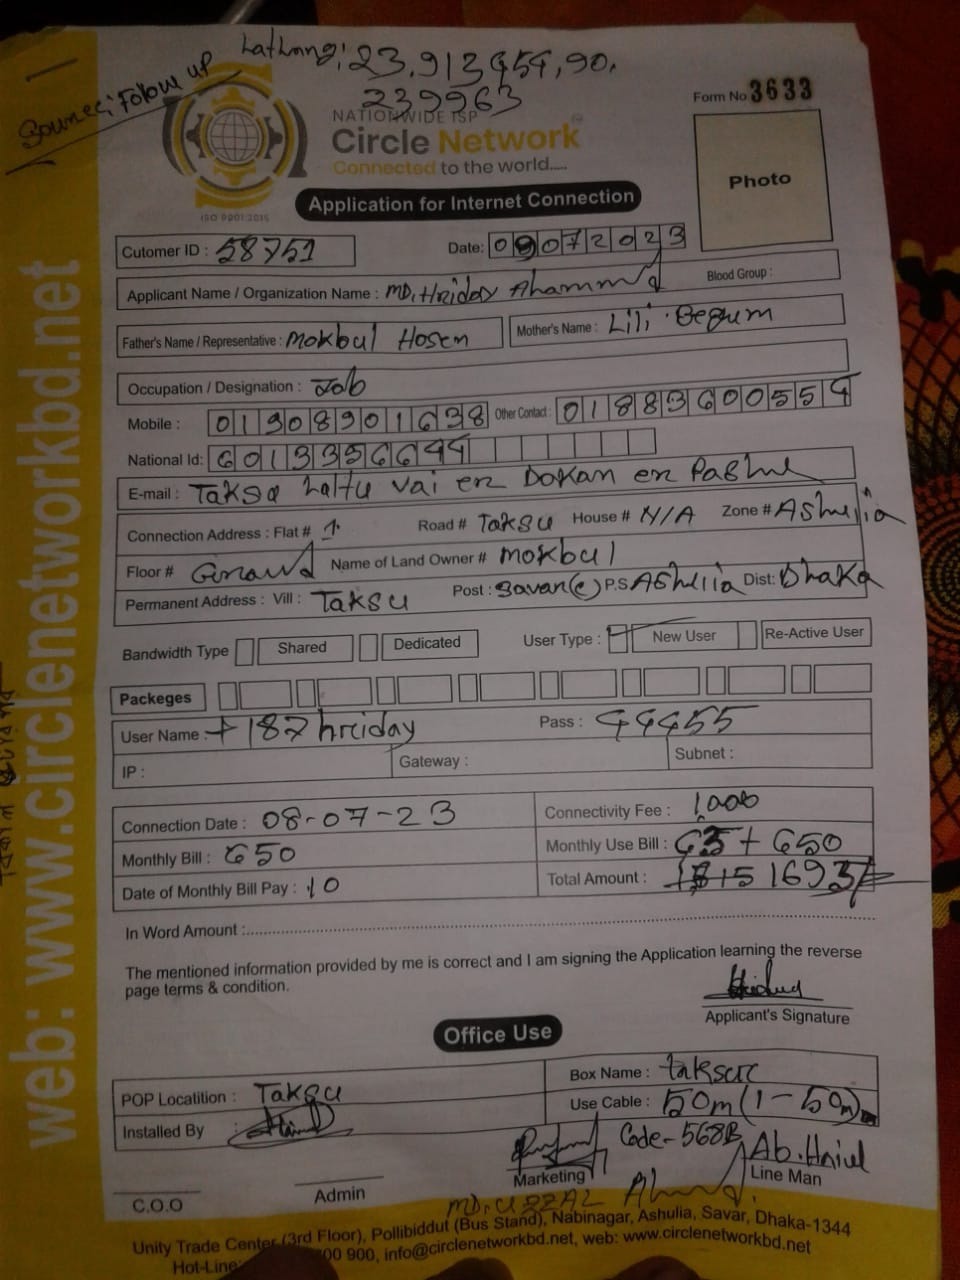 Lathong: 23.913454,90.
239963
Form No 3633
NATIONWIDE ISP
Circle Network
Connected to the world.....
ISO 9001:2015
Photo
Application for Internet Connection
Cutomer ID : 58751
Date: 09072023
Applicant Name / Organization Name : MD. Hriday Ahammed
Blood Group :
Father's Name / Representative : Mokbul Hosen
Mother's Name : Lili Begum
Occupation / Designation : Job
Mobile : 01908901638
Other Contact : 01883600554
National Id: 6013356644
E-mail : Taksu laltu vai er Dokan er Pashe
Connection Address : Flat # 1 Road # Taksu House # N/A Zone # Ashulia
Floor # Ground Name of Land Owner # Mokbul
Permanent Address : Vill : Taksu Post : Savar(c) P.S Ashulia Dist: Dhaka
Bandwidth Type Shared Dedicated User Type : New User Re-Active User
Packeges
User Name : + 187hriday
Pass : 44455
IP :
Gateway :
Subnet :
Connection Date : 08-07-23
Connectivity Fee : 1,000
Monthly Bill : 650
Monthly Use Bill : 43 + 650
Date of Monthly Bill Pay : 10
Total Amount : 1693/=
In Word Amount :
The mentioned information provided by me is correct and I am signing the Application learning the reverse
page terms & condition.
Applicant's Signature
Office Use
POP Locatition : Taksu
Box Name : taksur
Installed By :
Use Cable : 50m (1-50m)
Code-568B
Ab. Hniel
C.O.O
Admin
Marketing
Line Man
MD. UZZAL
Unity Trade Center (3rd Floor), Pollibiddut (Bus Stand), Nabinagar, Ashulia, Savar, Dhaka-1344
Hot-Line: 00 900, info@circlenetworkbd.net, web: www.circlenetworkbd.net
web: www.circlenetworkbd.net